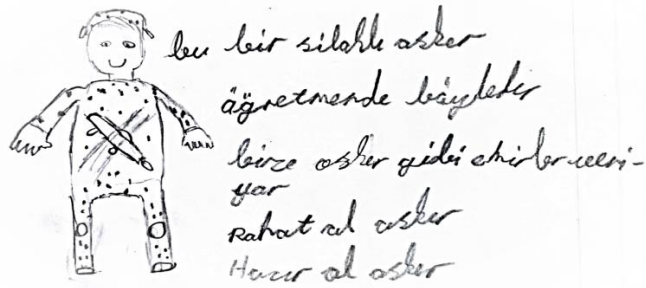 bu bir silahlı asker
äğretmende bäyledir
bize asker gibi emirler veri-
yor
Rahat ol asker
Hazır ol asker